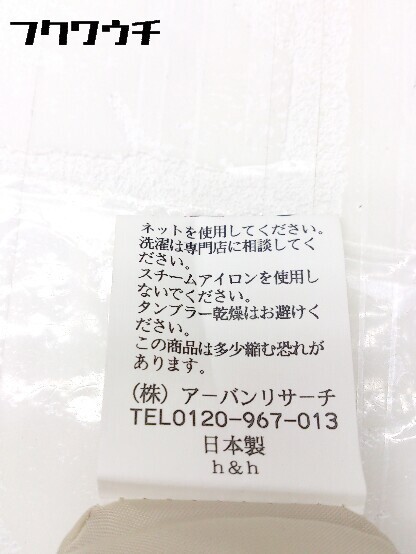 フクワウチ
ネットを使用してください。
洗濯は専門店に相談してく
ださい。
スチームアイロンを使用し
ないでください。
タンブラー乾燥はお避けく
ださい。
この商品は多少縮む恐れが
あります。
(株) アーバンリサーチ
TEL0120-967-013
日本製
h&h